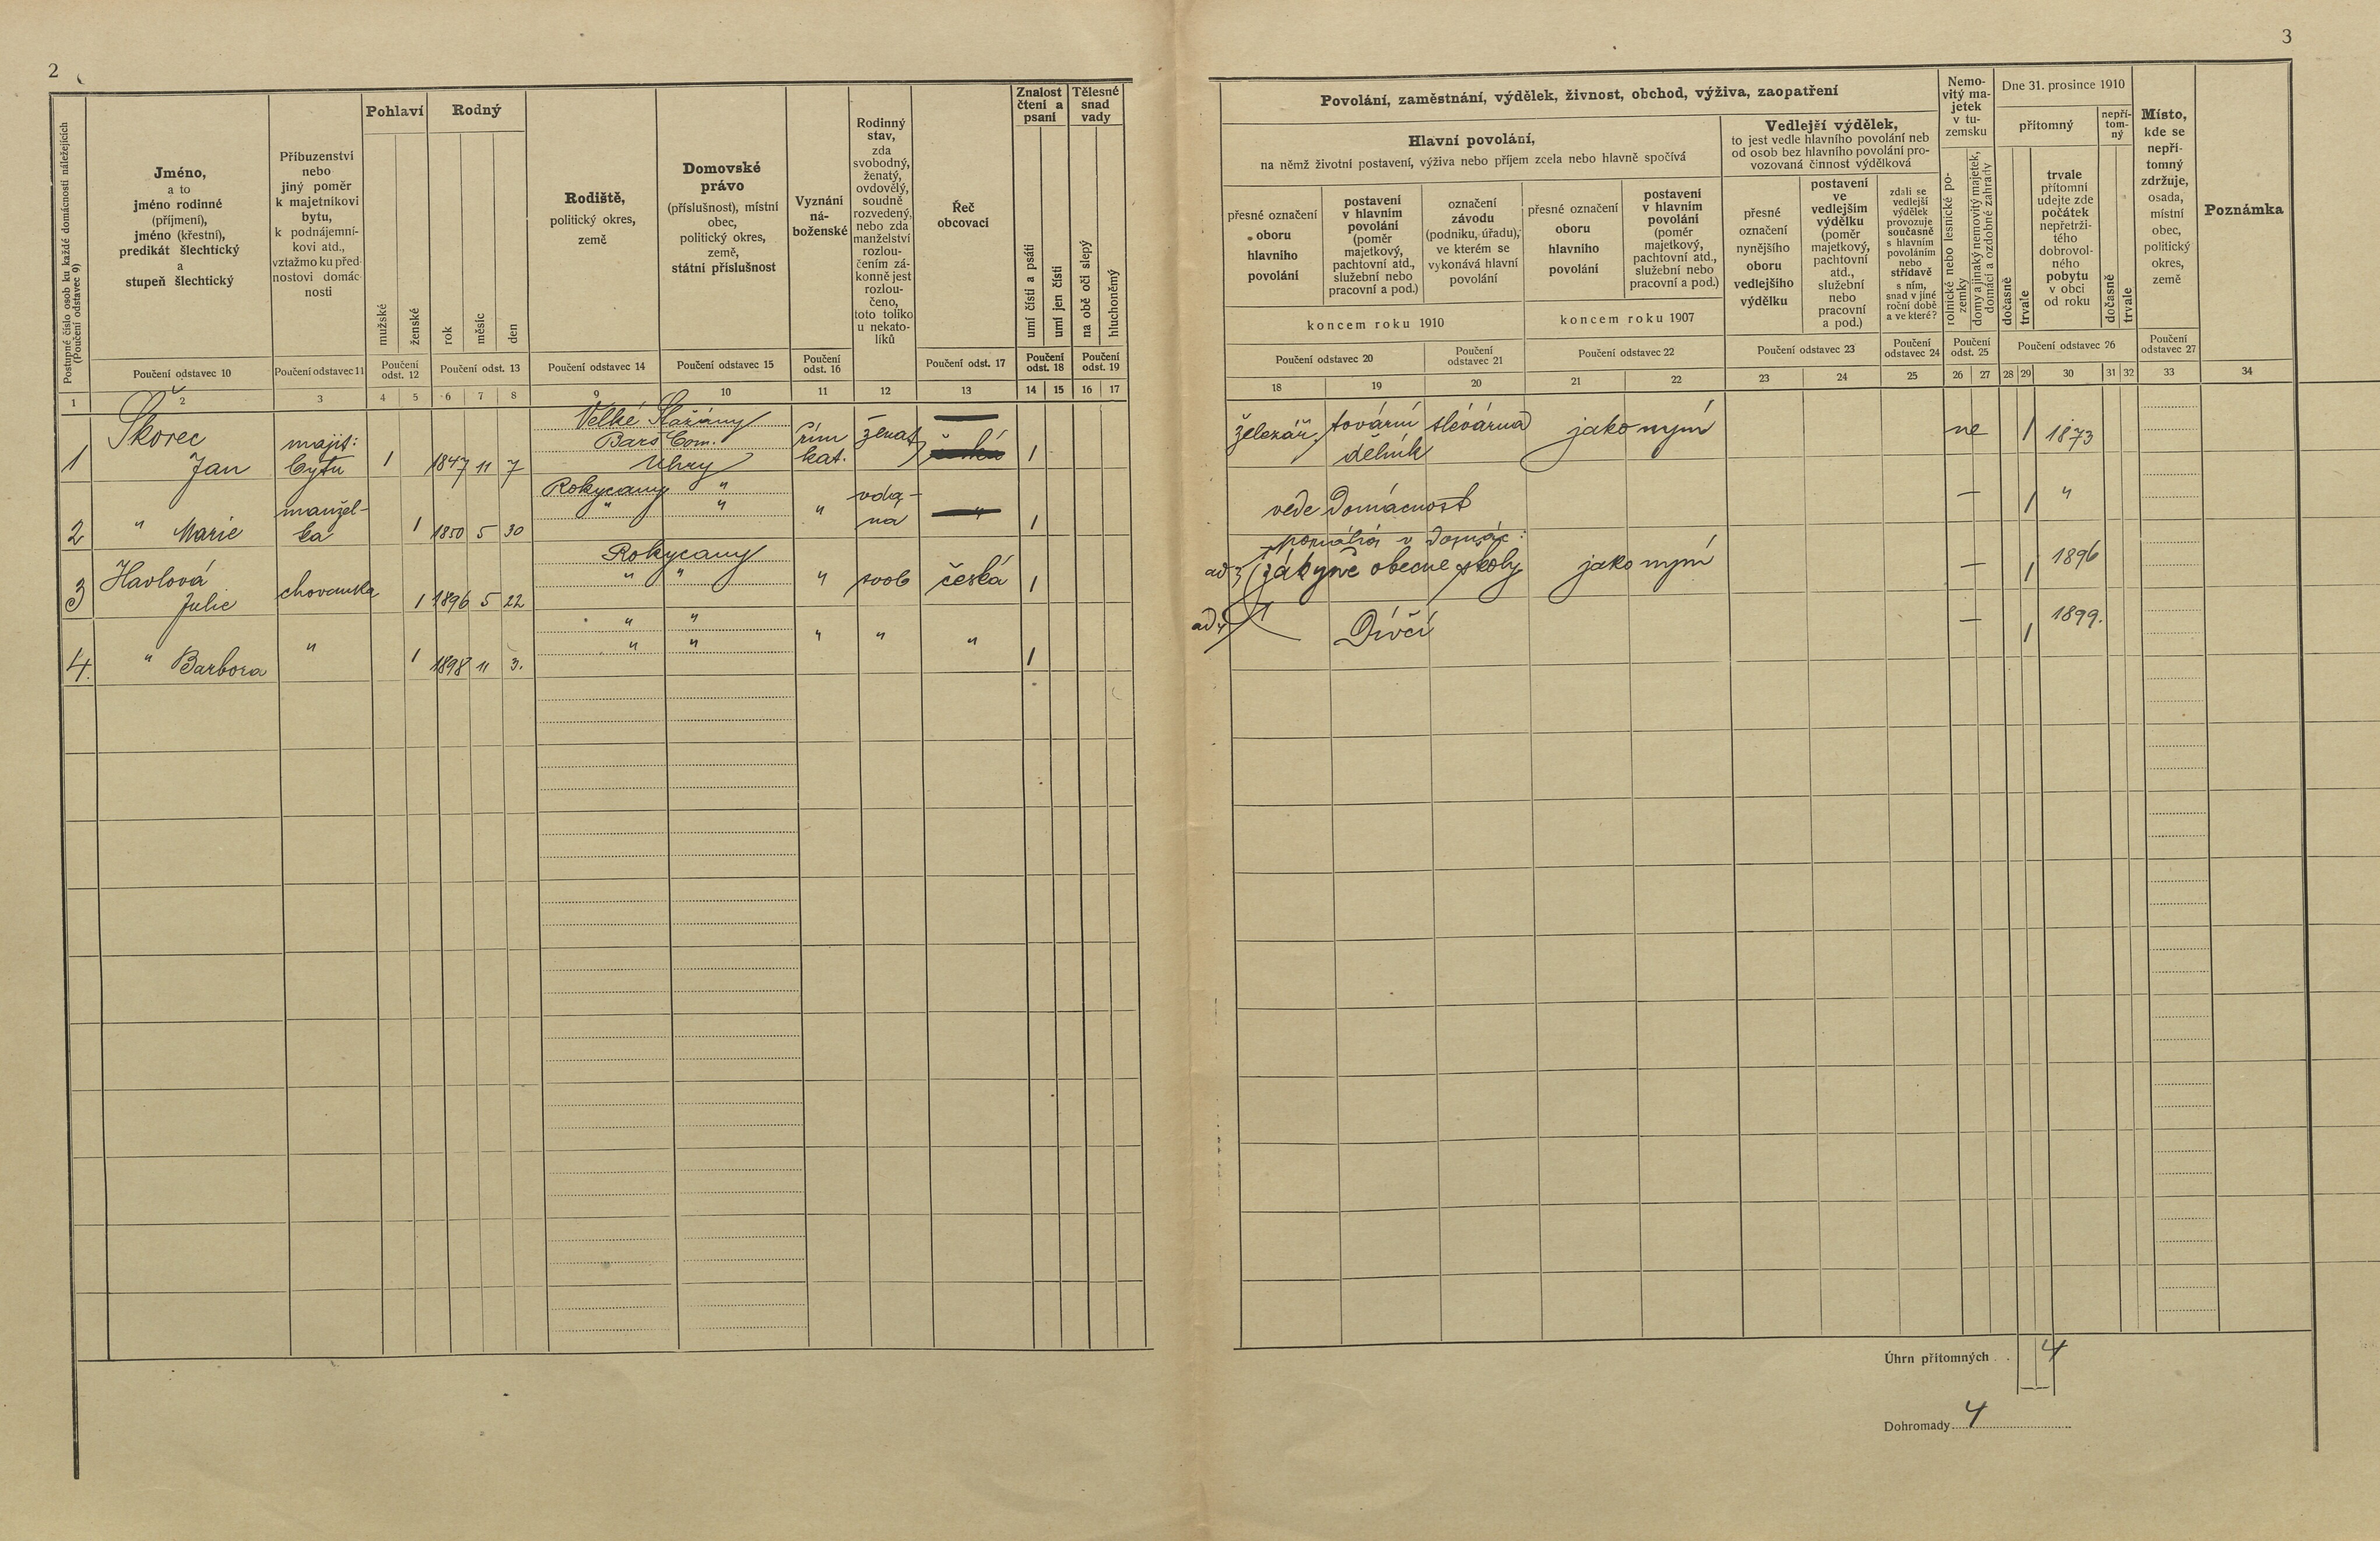 2
3
Postupné číslo osob ku každé domácnosti náležejících
(Poučení odstavec 9)
Jméno,
a to
jméno rodinné
(příjmení),
jméno (křestní),
predikát šlechtický
a
stupeň šlechtický
Příbuzenství
nebo
jiný poměr
k majetníkovi
bytu,
k podnájemní-
kovi atd.,
vztažmo ku před-
nostovi domác-
nosti
Pohlaví
mužské
ženské
Rodný
rok
měsíc
den
Rodiště,
politický okres,
země
Domovské
právo
(příslušnost), místní
obec,
politický okres,
země,
státní příslušnost
Vyznání
ná-
boženské
Rodinný
stav,
zda
svobodný,
ženatý,
ovdovělý,
soudně
rozvedený,
nebo zda
manželství
rozlou-
čením zá-
konně jest
rozlou-
čeno,
toto toliko
u nekato-
líků
Řeč
obcovací
Znalost
čtení a
psaní
umí čísti a psáti
umí jen čísti
Tělesné
snad
vady
na obě oči slepý
hluchoněmý
Poučení odstavec 10
Poučení odstavec 11
Poučení
odst. 12
Poučení odst. 13
Poučení odstavec 14
Poučení odstavec 15
Poučení
odst. 16
Poučení odst. 17
Poučení
odst. 18
Poučení
odst. 19
1 2 3 4 5 6 7 8 9 10 11 12 13 14 15 16 17
Povolání, zaměstnání, výdělek, živnost, obchod, výživa, zaopatření
Hlavní povolání,
na němž životní postavení, výživa nebo příjem zcela nebo hlavně spočívá
přesné označení
oboru
hlavního
povolání
postavení
v hlavním
povolání
(poměr
majetkový,
pachtovní atd.,
služební nebo
pracovní a pod.)
označení
závodu
(podniku, úřadu),
ve kterém se
vykonává hlavní
povolání
koncem roku 1910
přesné označení
oboru
hlavního
povolání
postavení
v hlavním
povolání
(poměr
majetkový,
pachtovní atd.,
služební nebo
pracovní a pod.)
koncem roku 1907
Vedlejší výdělek,
to jest vedle hlavního povolání neb
od osob bez hlavního povolání pro-
vozovaná činnost výdělková
přesné
označení
nynějšího
oboru
vedlejšího
výdělku
postavení
ve
vedlejším
výdělku
(poměr
majetkový,
pachtovní
atd.,
služební
nebo
pracovní
a pod.)
zdali se
vedlejší
výdělek
provozuje
současně
s hlavním
povoláním
nebo
střídavě
s ním,
snad v jiné
roční době
a ve které?
Nemo-
vitý ma-
jetek
v tu-
zemsku
rolnické nebo lesnické po-
zemky
domy a jinaký nemovitý majetek,
domácí a ozdobné zahrady
Dne 31. prosince 1910
přítomný
dočasně
trvale
trvale
přítomní
udejte zde
počátek
nepřetrži-
tého
dobrovol-
ného
pobytu
v obci
od roku
nepří-
tom-
ný
dočasně
trvale
Místo,
kde se
nepří-
tomný
zdržuje,
osada,
místní
obec,
politický
okres,
země
Poznámka
Poučení odstavec 20
Poučení
odstavec 21
Poučení odstavec 22
Poučení odstavec 23
Poučení
odstavec 24
Poučení
odst. 25
Poučení odstavec 26
Poučení
odstavec 27
18 19 20 21 22 23 24 25 26 27 28 29 30 31 32 33 34
1 Škorec
Jan
majit:
bytu
1 1847 11 7
Velké
Barš Com.
Uhry
řím
kat.
ženat
česká
1
železář. tovární slévárna jako nyní ne 1 1873
dělník
2 " Marie
manžel-
ka
1 1850 5 30
Rokycany "
" "
"
vda-
na
"
1
vede domácnost — 1 "
3 Havlová
Julie
chovanka 1 1896 5 22
Rokycany
" "
" svob česká 1
pomáhá v domác:
ad 3 žákyně obecné školy jako nyní — 1 1896
4. " Barbora " 1 1898 11 3.
" "
" "
" " " 1
ad 4 Dívčí — 1 1899.
Úhrn přítomných 4
Dohromady 4